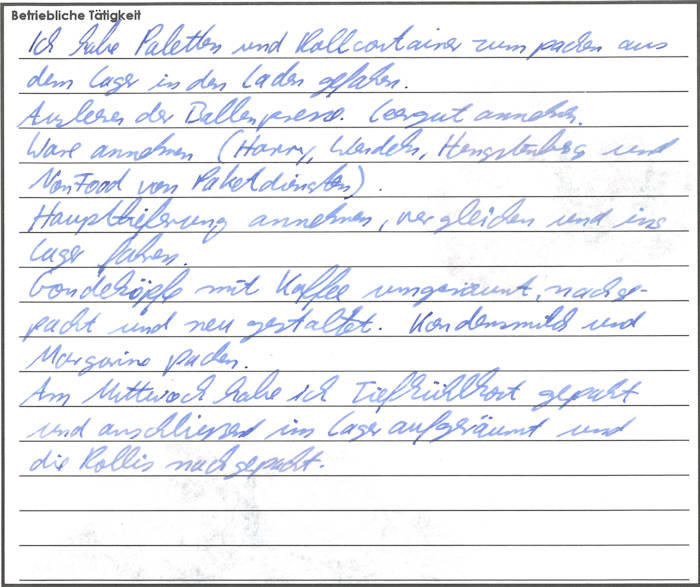 Betriebliche Tätigkeit
Ich habe Paletten und Rollcontainer zum packen aus
dem Lager in den Laden gefahren.
Ausleeren der Ballenpresse. Leergut annehmen.
Ware annehmen (Harry, Hengstenberg und
NonFood von Paketdiensten).
Hauptlieferung annehmen, vergleichen und ins
Lager fahren.
Gondelköpfe mit Kaffee umgeräumt, nachge-
packt und neu gestaltet. Kondensmilch und
Margarine packen.
Am Mittwoch habe ich Tiefkühlkost gepackt
und anschliessend im Lager aufgeräumt und
die Rollis nachgepackt.